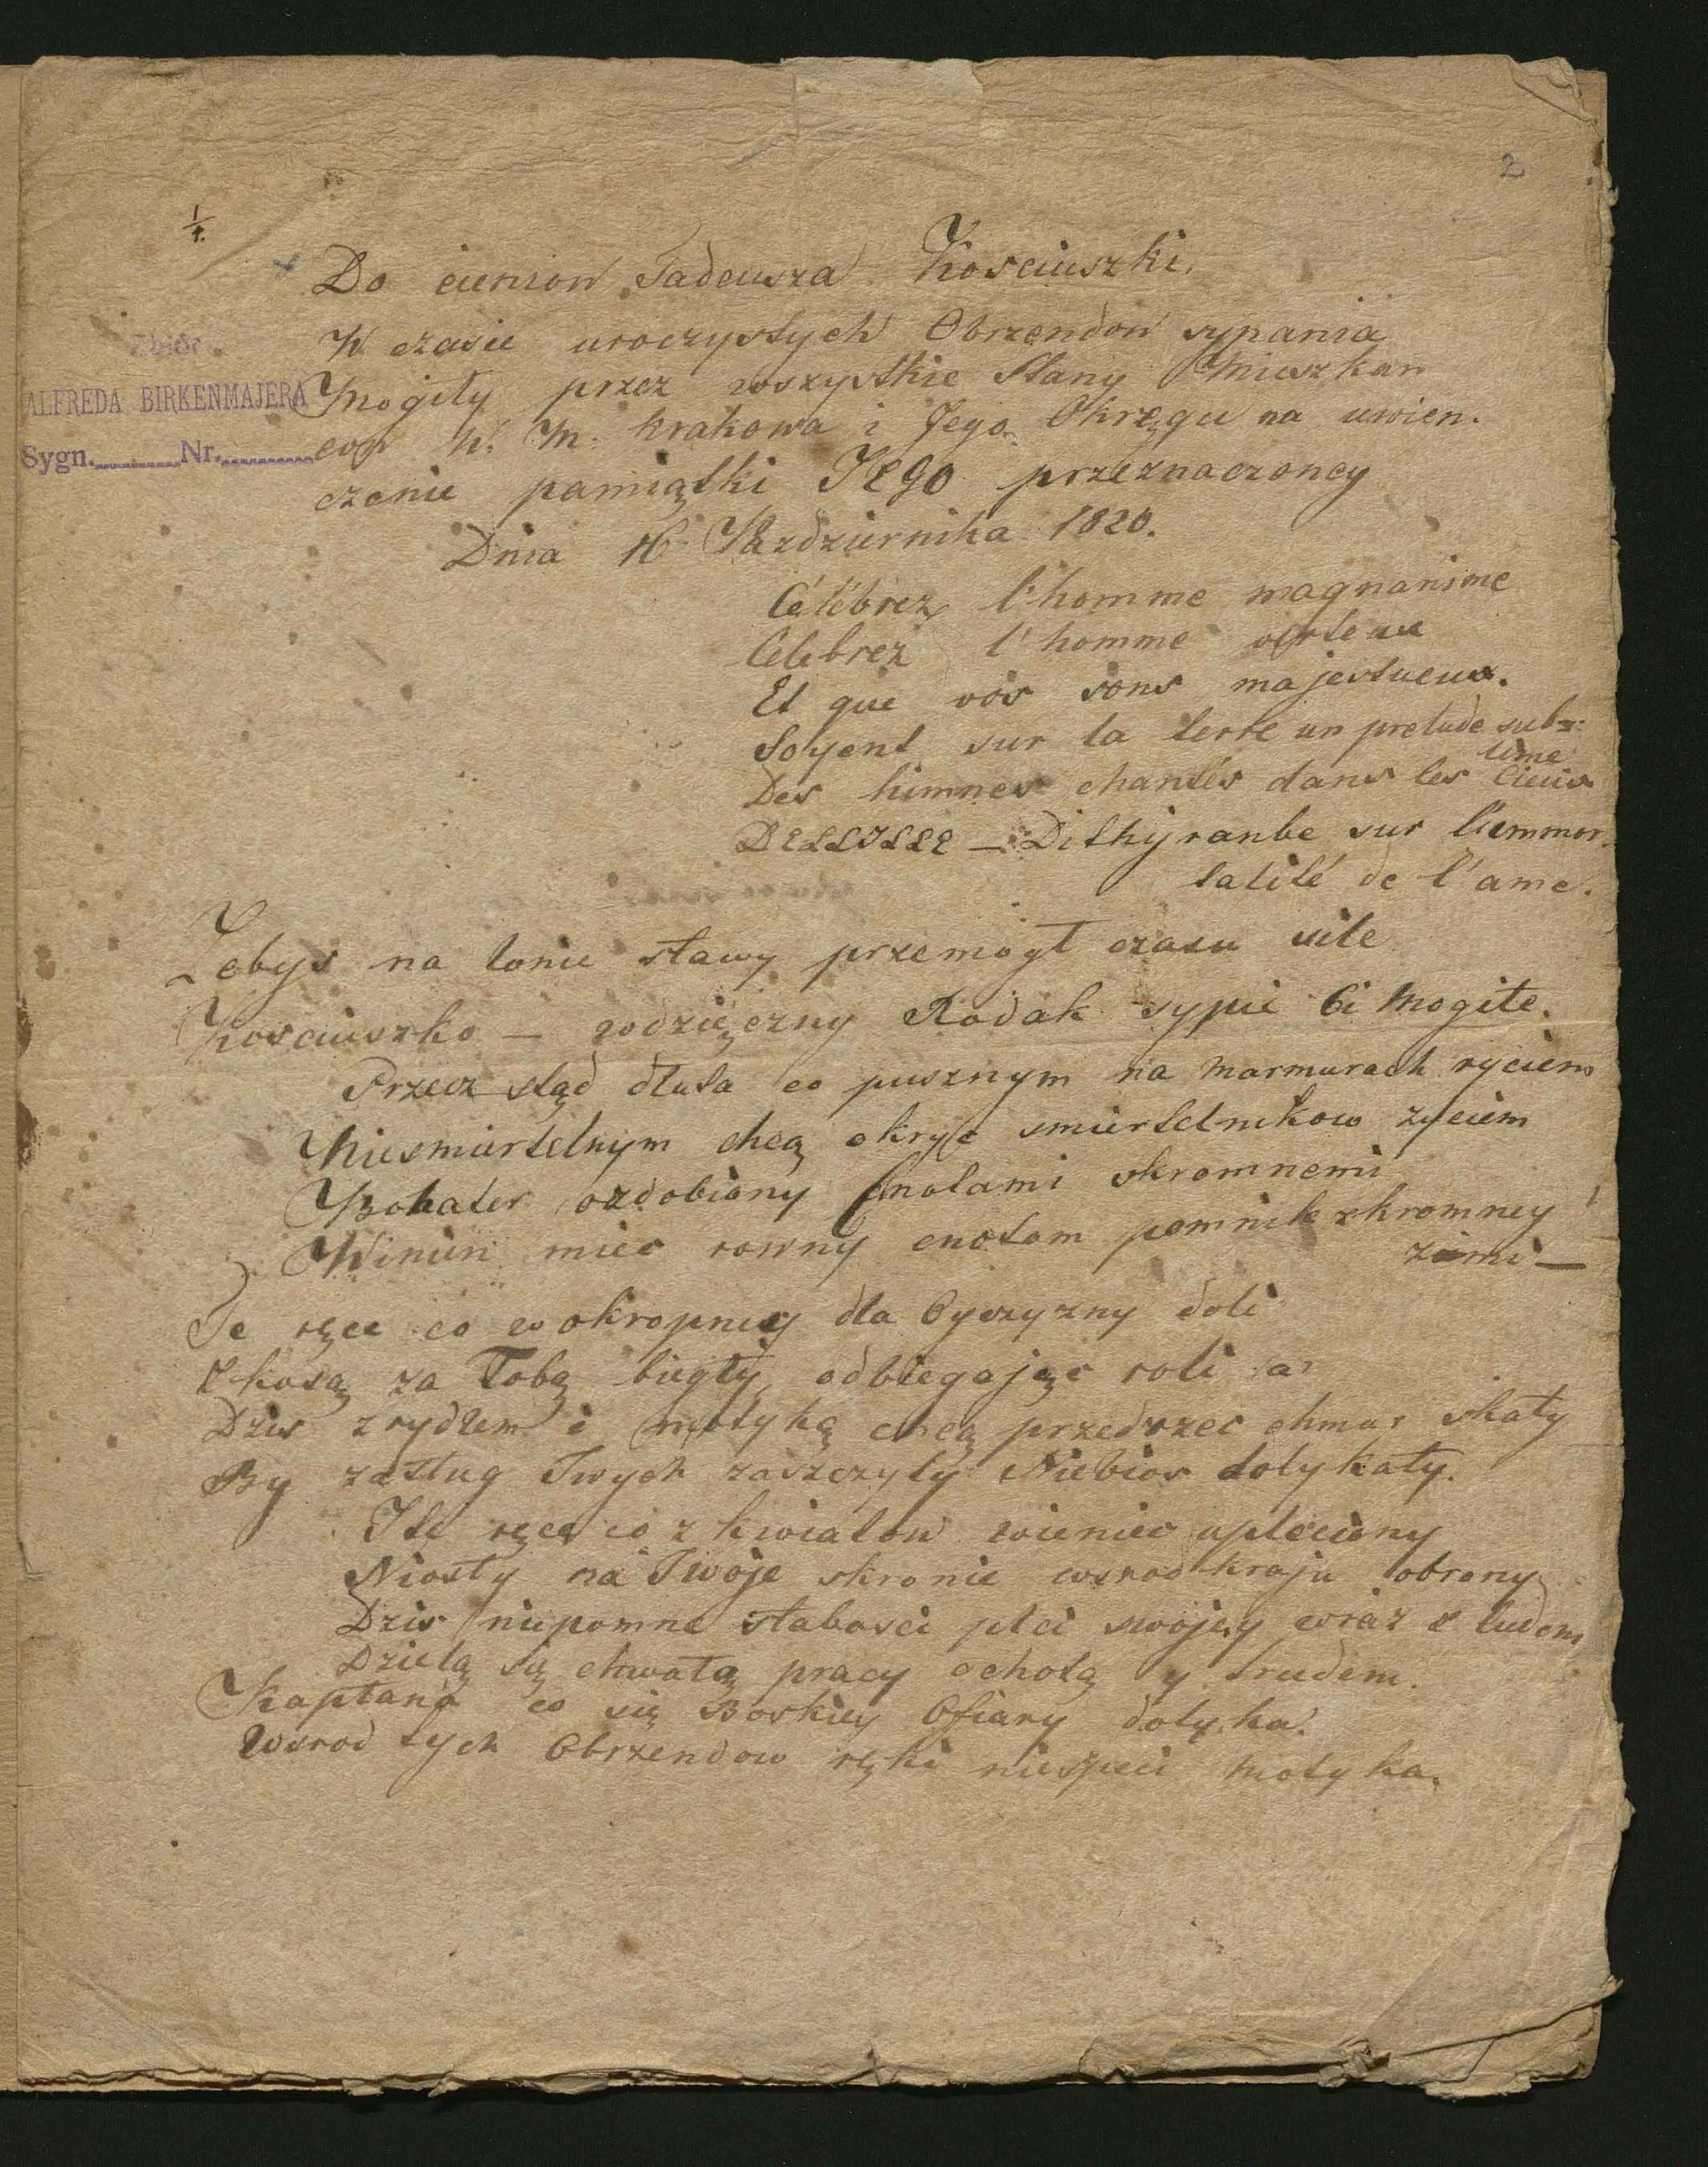 2
1/1.
Do cieniow Tadeusza Kosciuszki.
W czasie uroczystych Obrzendow sypania
Mogiły przez wszystkie Stany Mieszkan
cow W. M. Krakowa i Jego Okręgu na uwien.
czenie pamiątki JEgo przeznaczoney
Dnia 16 Pazdziernika 1820.
Zbiór
ALFREDA BIRKENMAJERA
Sygn. Nr.
Célébrez l'homme magnanime
Celebrez l'homme verteux
Et que vos sons majestueux.
Soyent sur la terre un prelude sub=
lime
Des himnes chantés dans les Cieux
DELLILLE — Dithyranbe sur l'immor
talité de l'ame.
Zebys na łonie sławy przemógł czasu siłe
Kosciuszko — wdzięczny Rodak sypie Ci Mogiłe.
Przecz stąd dłuta co pusznym na marmurach ryciem
Niesmiertelnym chcą okryc smiertelnikow zyciem
Bohater ozdobiony Cnotami skromnemi
Winien miec rowny cnotom pomnik skromney
ziemi —
Te ręce co w okropney dla Oyczyzny doli
Z kosą za Tobą biegły odbiegając roli
Dzis z rydlem i motyką chcą przedrzec chmur skały
By zasług Twych zaszczyty Niebios dotykały.
I te ręce co z kwiatow wieniec upleciony
Niosły na Twoje skronie wsrod kraju obrony
Dzis niepomne słabosci płci swojey wraz z ludem
Dzielą się chwałą pracy ochotą y trudem.
Kapłana co się Boskiey Ofiary dotyka.
Wsrod tych Obrzendow ręki nieszpeci motyka.